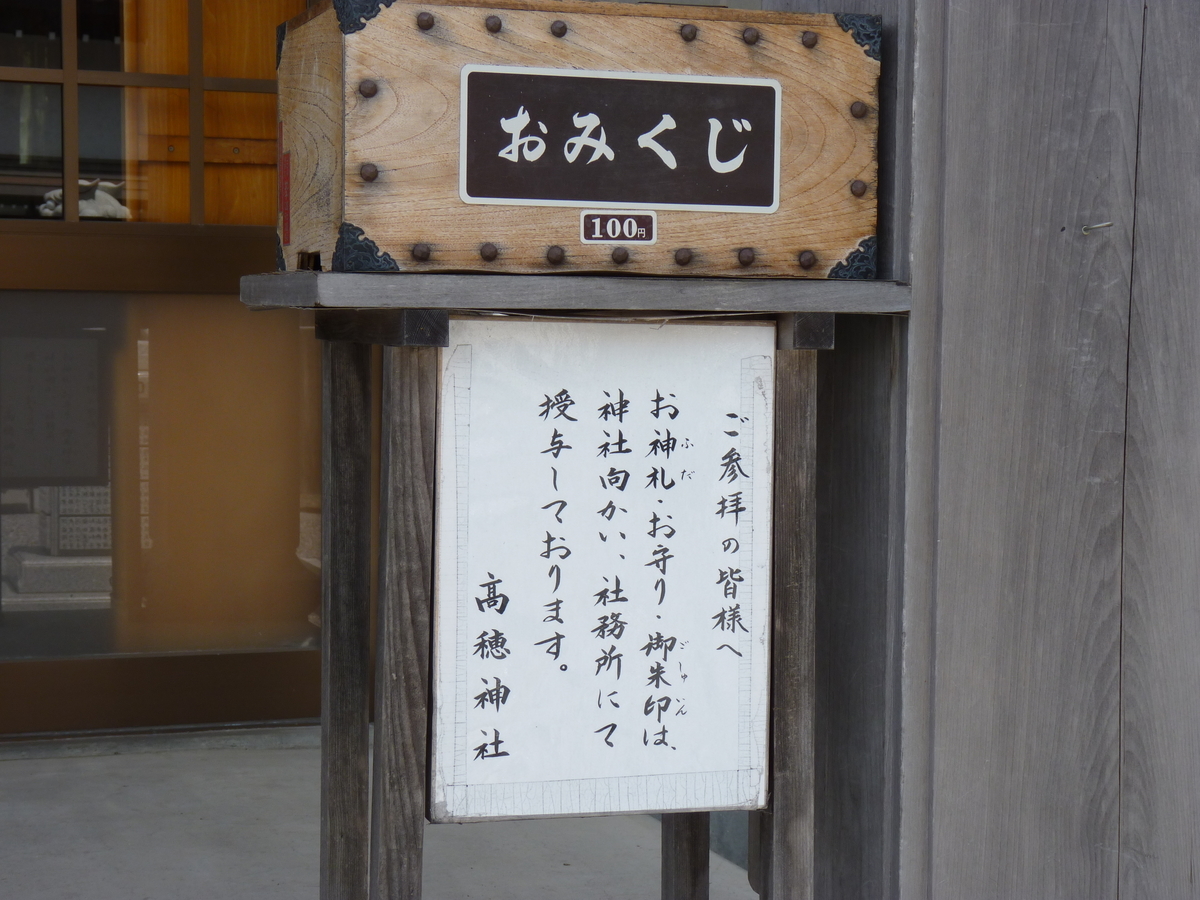 おみくじ
100円
ご参拝の皆様へ
お神札・お守り・御朱印は、
ふだ
ごしゅいん
神社向かい、社務所にて
授与しております。
高穂神社